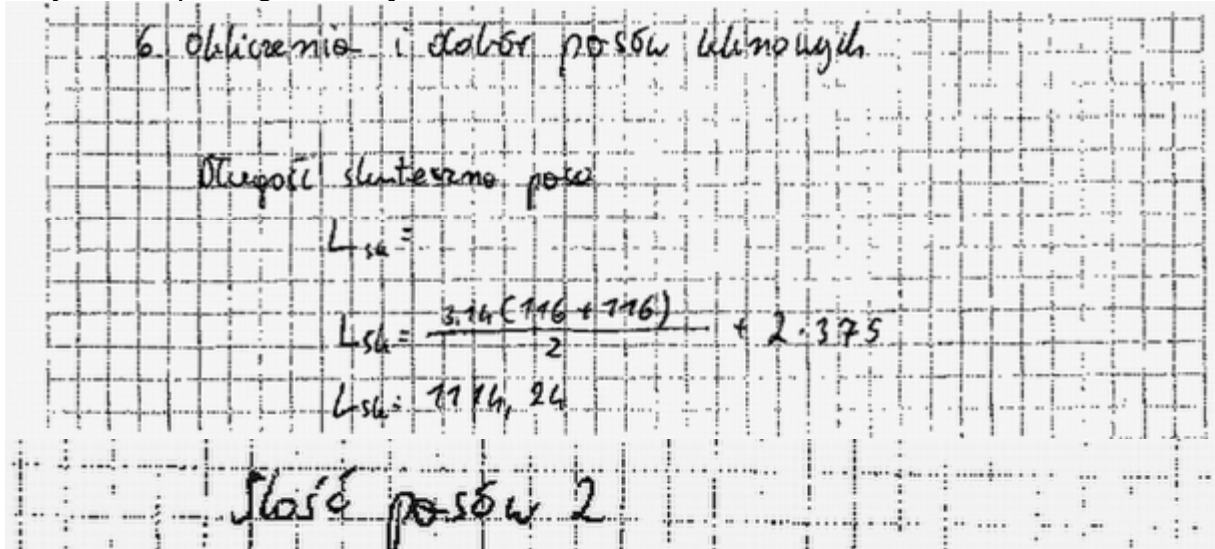 6. Obliczenia i dobór pasów klinowych
Długość skuteczna pasa
Lsk =
Lsk = 3.14(116 + 116) / 2 + 2·375
Lsk = 1114, 24
Ilość pasów 2